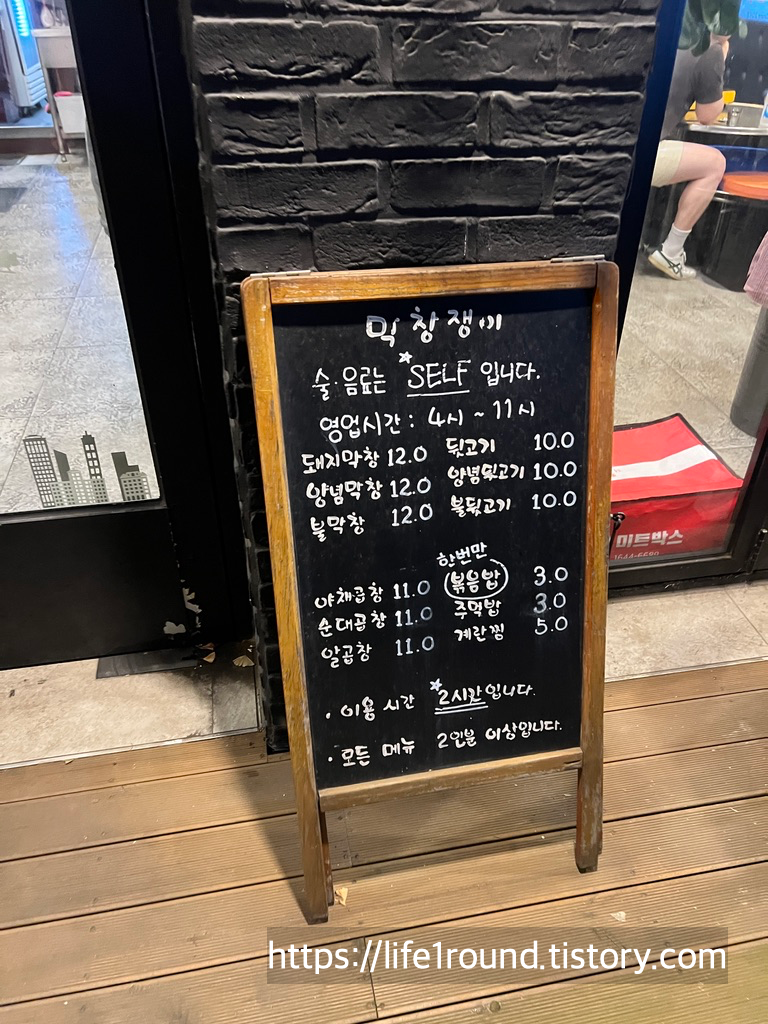 막창쟁이
술·음료는 *SELF 입니다.
영업시간 : 4시 ~ 11시
돼지막창 12.0 뒷고기 10.0
양념막창 12.0 양념뒷고기 10.0
불막창 12.0 불뒷고기 10.0
한번만
야채곱창 11.0 볶음밥 3.0
순대곱창 11.0 주먹밥 3.0
알곱창 11.0 계란찜 5.0
· 이용 시간 *2시간입니다.
· 모든 메뉴 2인분 이상입니다.
미트박스
1544-6680
https://life1round.tistory.com